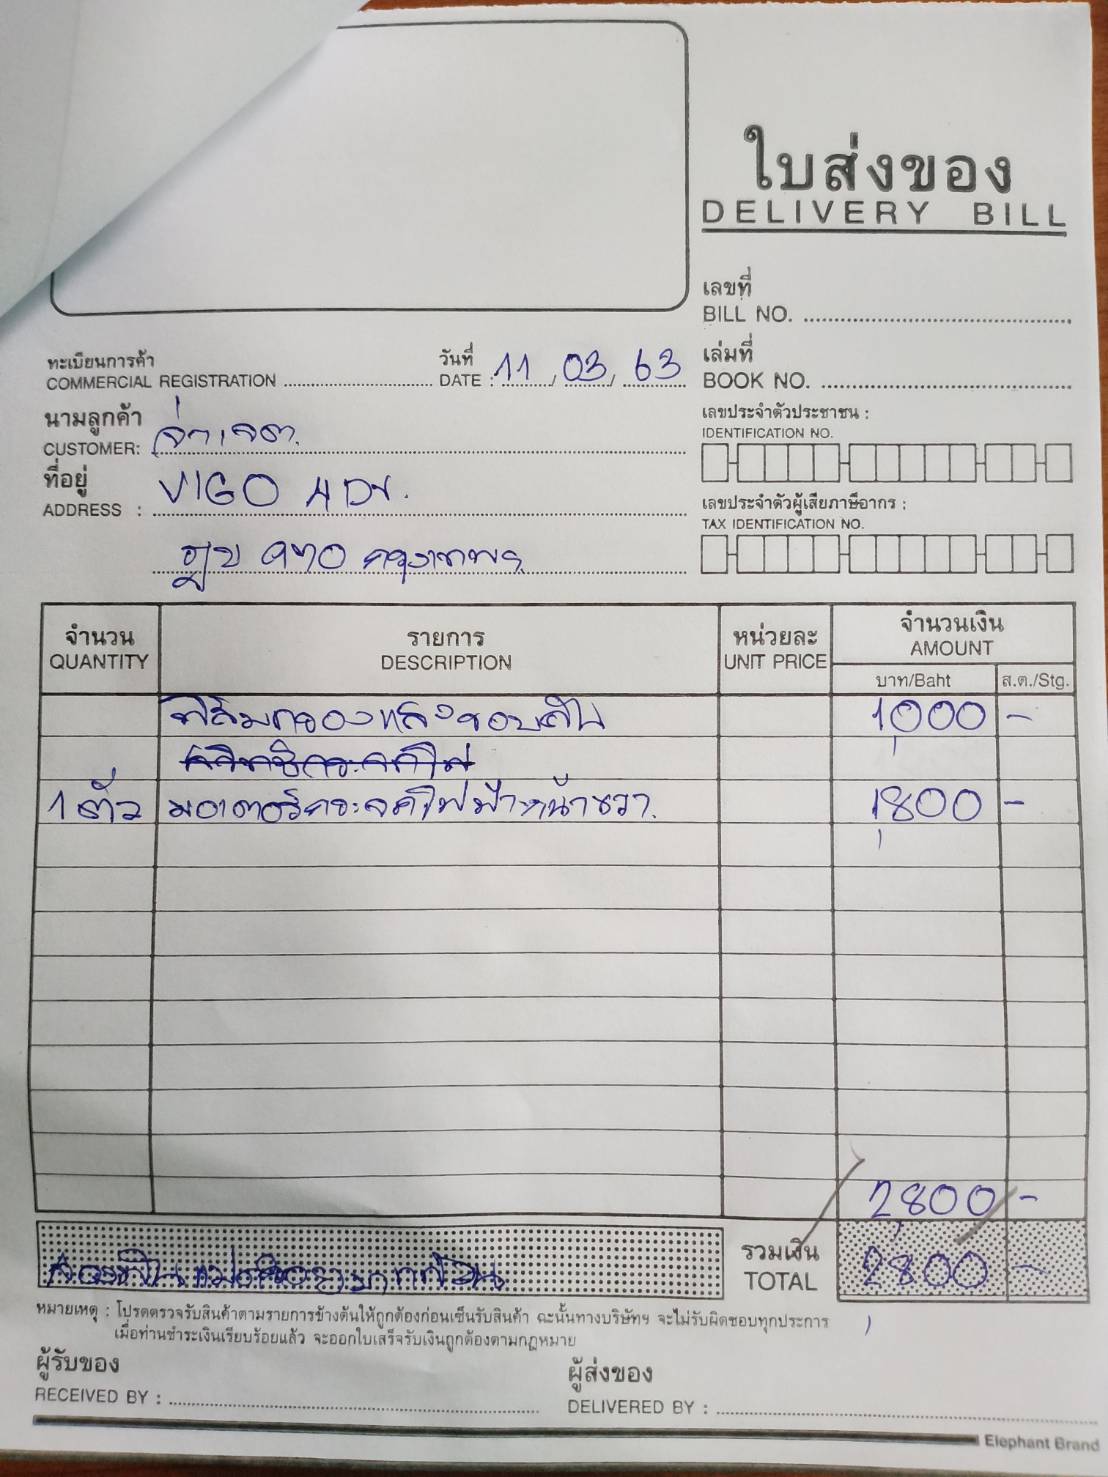 ใบส่งของ
DELIVERY BILL
เลขที่
BILL NO.
ทะเบียนการค้า
COMMERCIAL REGISTRATION
วันที่
DATE : 11 / 03 / 63
เล่มที่
BOOK NO.
นามลูกค้า
CUSTOMER: จ่าเจต
เลขประจำตัวประชาชน :
IDENTIFICATION NO.
ที่อยู่
ADDRESS : VIGO 4 Dr.
เลขประจำตัวผู้เสียภาษีอากร :
TAX IDENTIFICATION NO.
กรุงเทพฯ
จำนวน
QUANTITY
รายการ
DESCRIPTION
หน่วยละ
UNIT PRICE
จำนวนเงิน
AMOUNT
บาท/Baht
ส.ต./Stg.
ฟิล์มกรองแสงรอบคัน 1,000 -
1 ตัว มอเตอร์กระจกไฟฟ้าหน้าขวา 1,800 -
2,800 -
รวมเงิน
TOTAL
2,800 -
หมายเหตุ : โปรดตรวจรับสินค้าตามรายการข้างต้นให้ถูกต้องก่อนเซ็นรับสินค้า ฉะนั้นทางบริษัทฯ จะไม่รับผิดชอบทุกประการ
เมื่อท่านชำระเงินเรียบร้อยแล้ว จะออกใบเสร็จรับเงินถูกต้องตามกฎหมาย
ผู้รับของ
RECEIVED BY :
ผู้ส่งของ
DELIVERED BY :
Elephant Brand